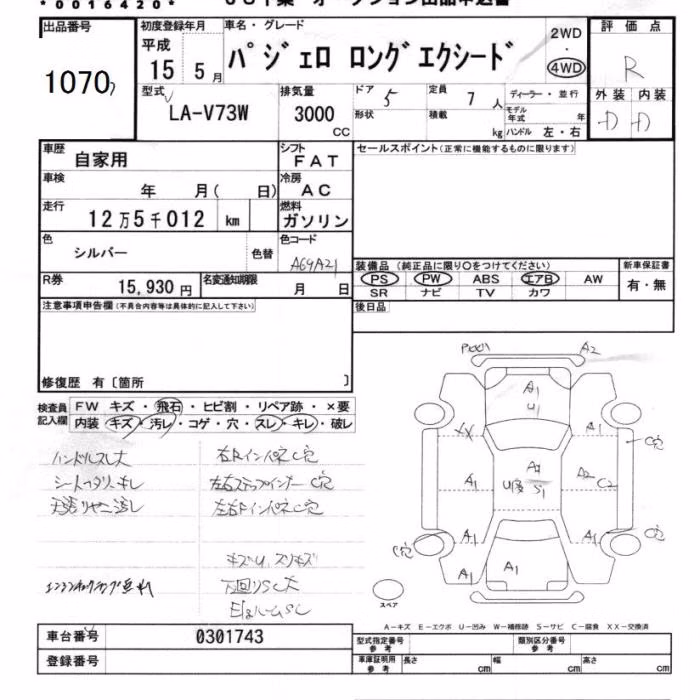 *0016420*
出品番号 初度登録年月 車名・グレード 評価点
1070 平成 15年 5月 パジェロ ロングエクシード 2WD・4WD R
型式 LA-V73W 排気量 3000 CC ドア 5 定員 7人 ディーラー・並行 外装 内装
形状 積載 kg モデル年式 年 ハンドル 左・右 D D
車歴 自家用 シフト FAT セールスポイント(正常に機能するものに限ります)
車検 年 月( 日) 冷房 AC
走行 12万5千012 km 燃料 ガソリン
色 シルバー 色替 色コード A69A21
装備品(純正品に限り○をつけてください) 新車保証書
PS PW ABS エアB AW 有・無
SR ナビ TV カワ
R券 15,930円 名変通知期限 月 日 後日品
注意事項申告欄(不具合内容等は具体的に記入して下さい)
修復歴 有〔箇所 〕
検査員記入欄 FW キズ・飛石・ヒビ割・リペア跡・×要
内装 キズ・汚レ・コゲ・穴・スレ・キレ・破レ
ハンドルスレ大 右Rインパネ C穴
左右ステップインナー C穴
左右Fインパネ C穴
キズU、スリキズ
下回りSC大
P001 A2
A1 U1
XX A1 C穴
A1 A2 C2
A1 A1 C穴
C穴
A1 A1
スペア
A-キズ E-エクボ U-凹み W-補修跡 S-サビ C-腐食 XX-交換済
車台番号 0301743 型式指定番号 参考 類別区分番号 参考
登録番号 車庫証明用 参考 長さ cm 幅 cm 高さ cm